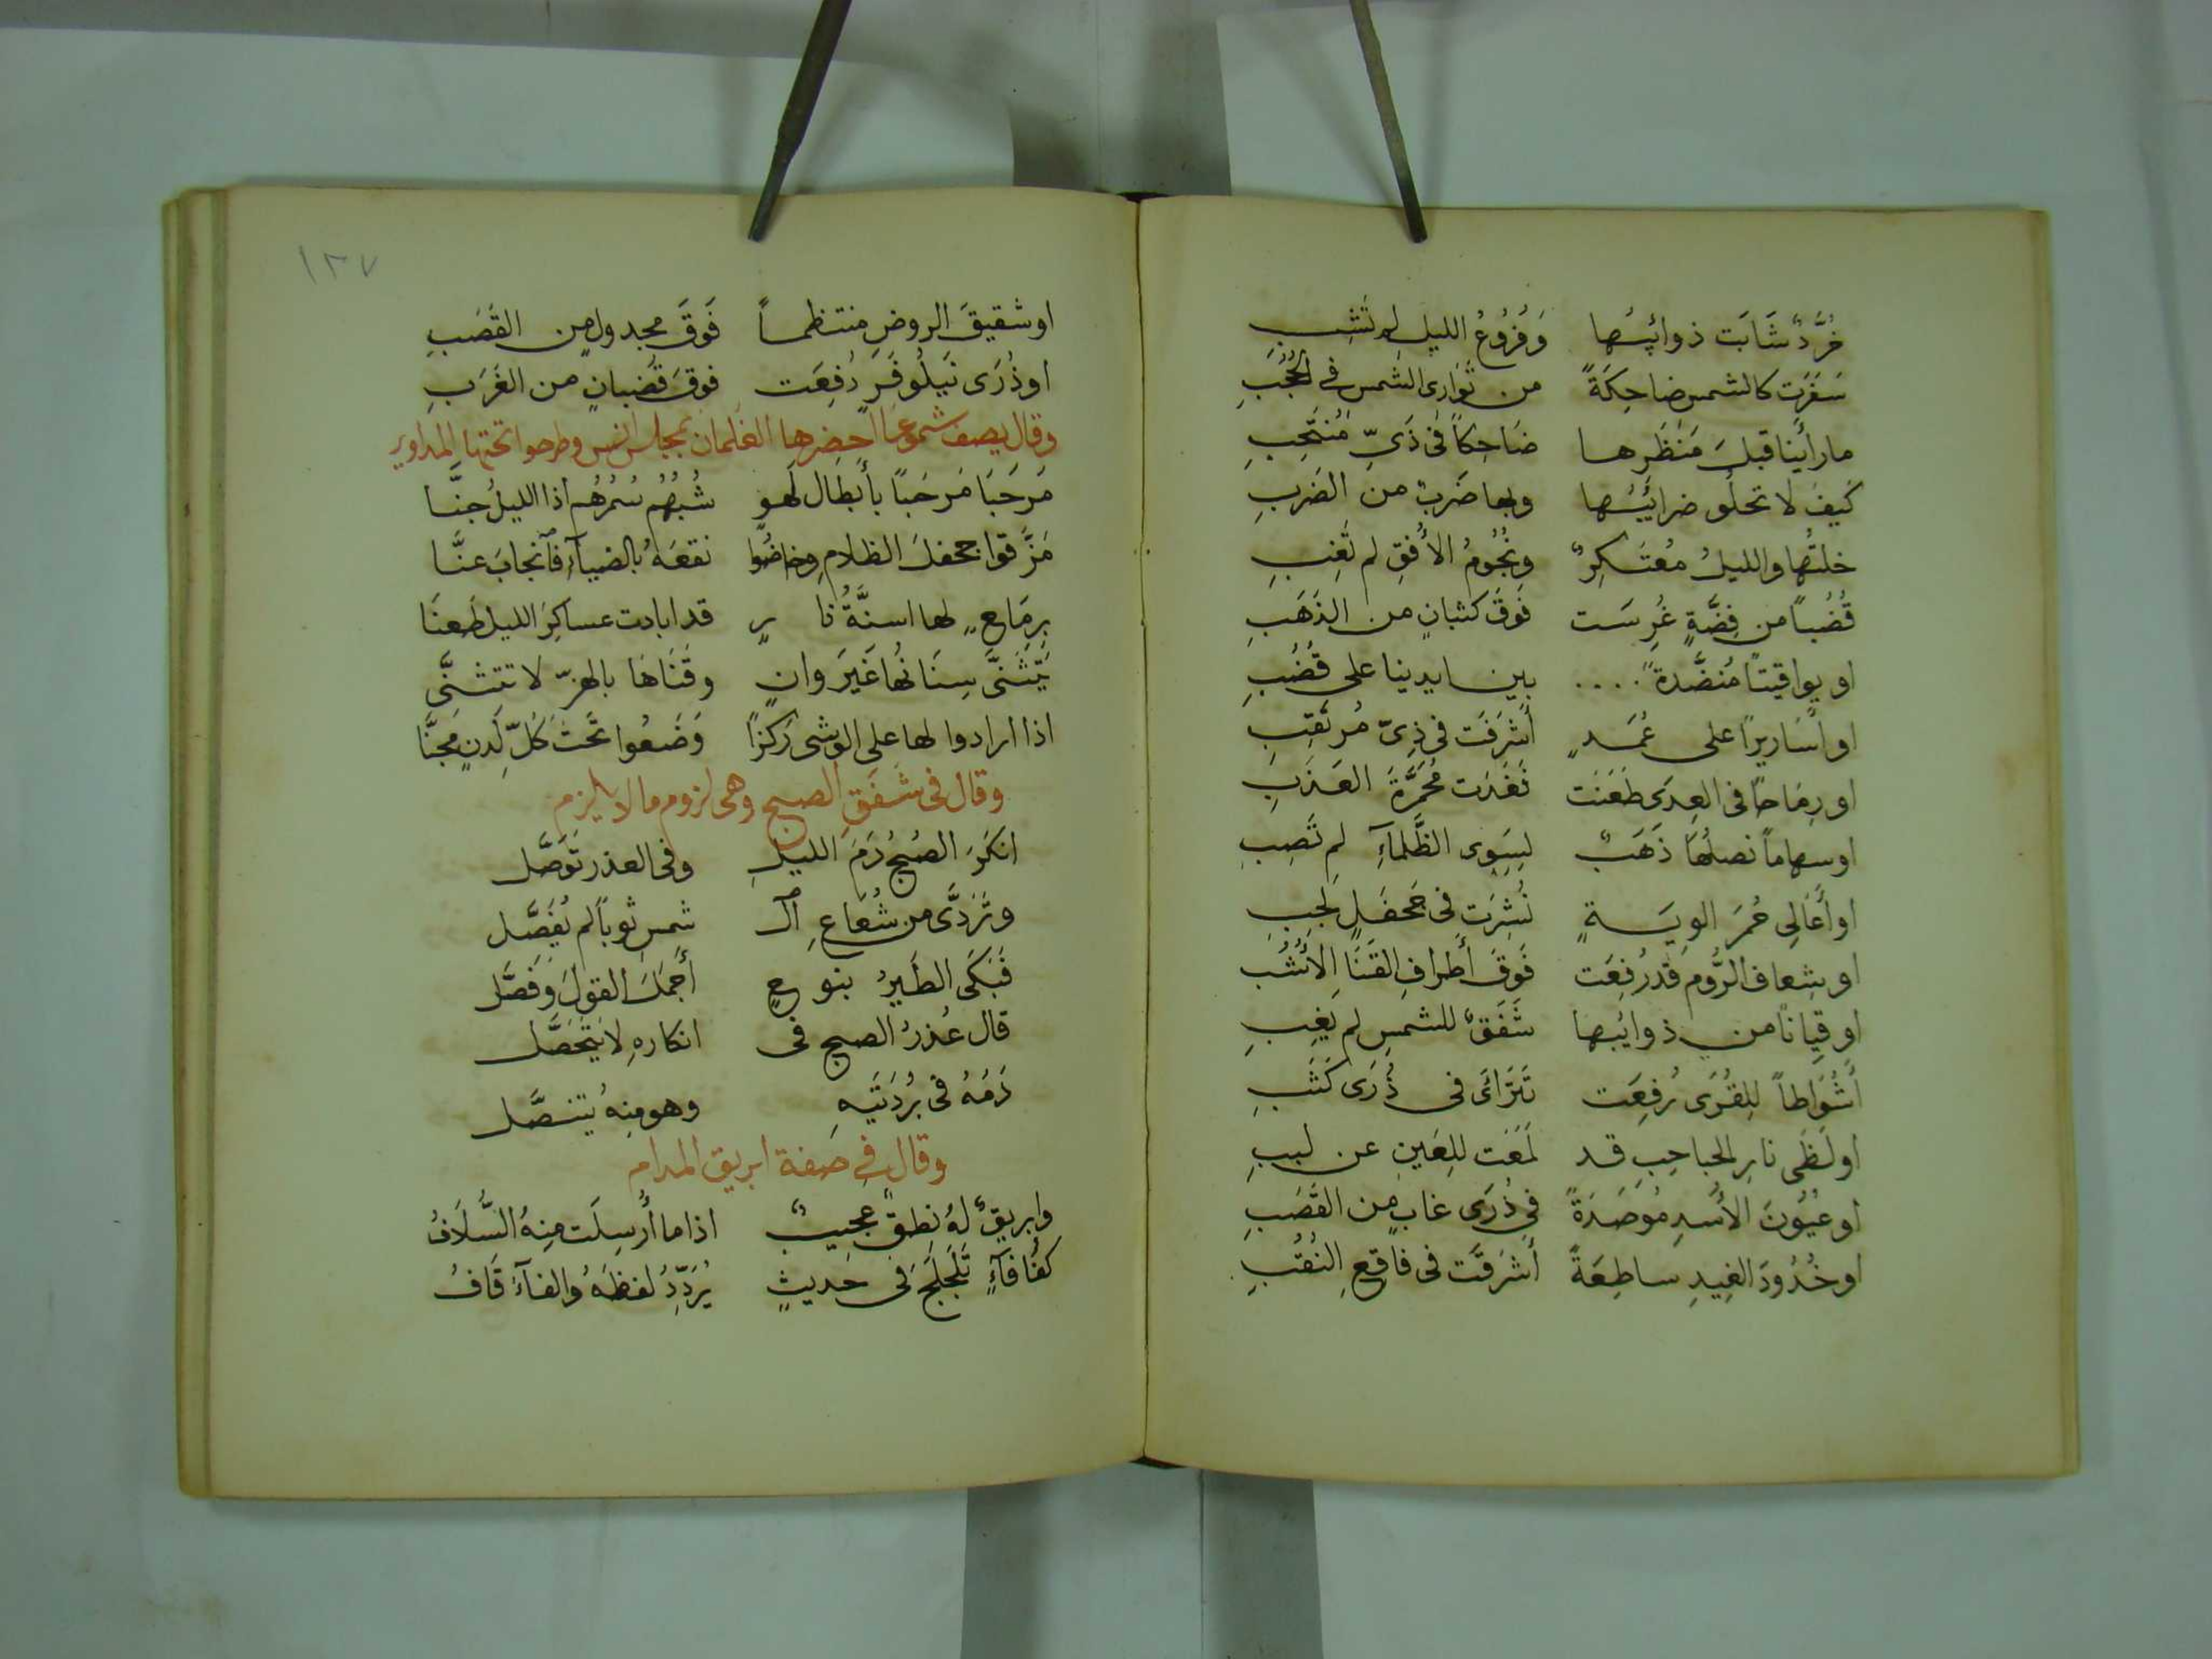 خُرَّدٌ شَابَت ذوائبُها وَفُرُوعُ الليلِ لم تَشِبِ
سَفَرَت كالشمس ضاحِكَةً من تَوَارى الشمس في الحُجُبِ
ما رأينا قبلَ مَنظَرِها ضَاحِكاً فى زَىِّ مُنتَحِبِ
كَيفَ لا تحلُو ضرائبُها وبها ضَربٌ من الضَربِ
خلتُها والليلُ مُعتَكِرٌ ونُجُومُ الأُفقِ لم تَغِبِ
قُضُباً من فِضَّةٍ غُرِسَت فَوقَ كثبانٍ من الذَهَبِ
او يواقيتاً مُنضَّدةً .... بين ايدينا على قُضُبِ
او أسَاريراً على عُمَدٍ أشرَفَت فى زِىّ مُرتَقِبِ
او رِمَاحاً فى العِدَى طَعَنَت فَغَدَت مُحمَرَّةَ العَذَبِ
او سهاماً نصلُها ذَهَبٌ لسِوى الظَّلماءِ لم تَصِبِ
او أعَالِى حُمرَ الويَــةٍ نُشِرَت فى جَحفَلٍ لَجِبِ
او شِعاف الرُّوم قد رُفِعَت فَوقَ أطرافِ القَنَا الأشُبِ
او قِيَاناً من ذوائبها شَفَقٌ للشمسِ لم يَغِبِ
أشُوَاطاً للِقُرَى رُفِعَت تَتَراءَى فى ذُرَى كَثَبِ
او لَظَى نارِ الحباحِبِ قد لَمَعَت للِعَينِ عن لببِ
او عيُونَ الأُسدِ مُوصَدَةً فى ذُرَى غابٍ من القَصَبِ
او خُدُودَ الغِيدِ ساطِعَةً أشرَقَت فى فاقعِ النُقُبِ
١٣٧
او شقيقَ الروضِ منتظمـاً فَوقَ مجدولٍ من القَصَبِ
او ذُرَى نَيلُوفَرٍ رُفِعَت فوقَ قُضبانٍ من الغَرَبِ
وقال يصف شموعاً احضرها الغلمان بمجلس انس وطرحوا تحتها المداوير
مَرحَبَا مَرحَباً بأبطال لَهوٍ شُبُهُم سُمرُهُم اذا الليلُ جنَّـا
مَزَّقوا جحفلَ الظلامِ وخاضُوا نقعَهُ بالضياءِ فآنجابَ عنَّـا
بِرِمَاحٍ لها اسنَّةُ نارٍ قد ابادت عساكِرَ الليل طَعنَا
يَتَثَنَّى سِنَانُها غَيرَ وانٍ وقَنَاهَا بالهزّ لا تتثنَّى
اذا ارادوا لها على الوشى رَكزاً وَضَعُوا تَحتَ كُلِّ لَدنٍ مجنَّا
وقال فى شَفَقِ الصبح وهى لزوم ما لا يلزم
انكَرَ الصُبحُ دَمَ الليلِ وفى العذر تَوَصَّل
وتَرَدَّى من شُعَاعِ آلـ شمسِ ثوباً لم يُفَصَّل
فَبَكَى الطَيرُ بنوحٍ أجمَلَ القولَ وَفَصَّل
قال عُذرُ الصبح فى انكارهِ لا يَتَحَصَّل
دَمُهُ فى بُردَتَيهِ وهو مِنهُ يتنصَّل
وقال فى صفة ابريق المدام
وابريقٌ لهُ نطقٌ عجيبٌ اذا ما أُرسِلَت مِنهُ السُّلَافُ
كفأفاءٍ تَلَجلَجَ فى حَديثٍ يُرَدِّدُ لفظهُ والفآءُ قَافُ